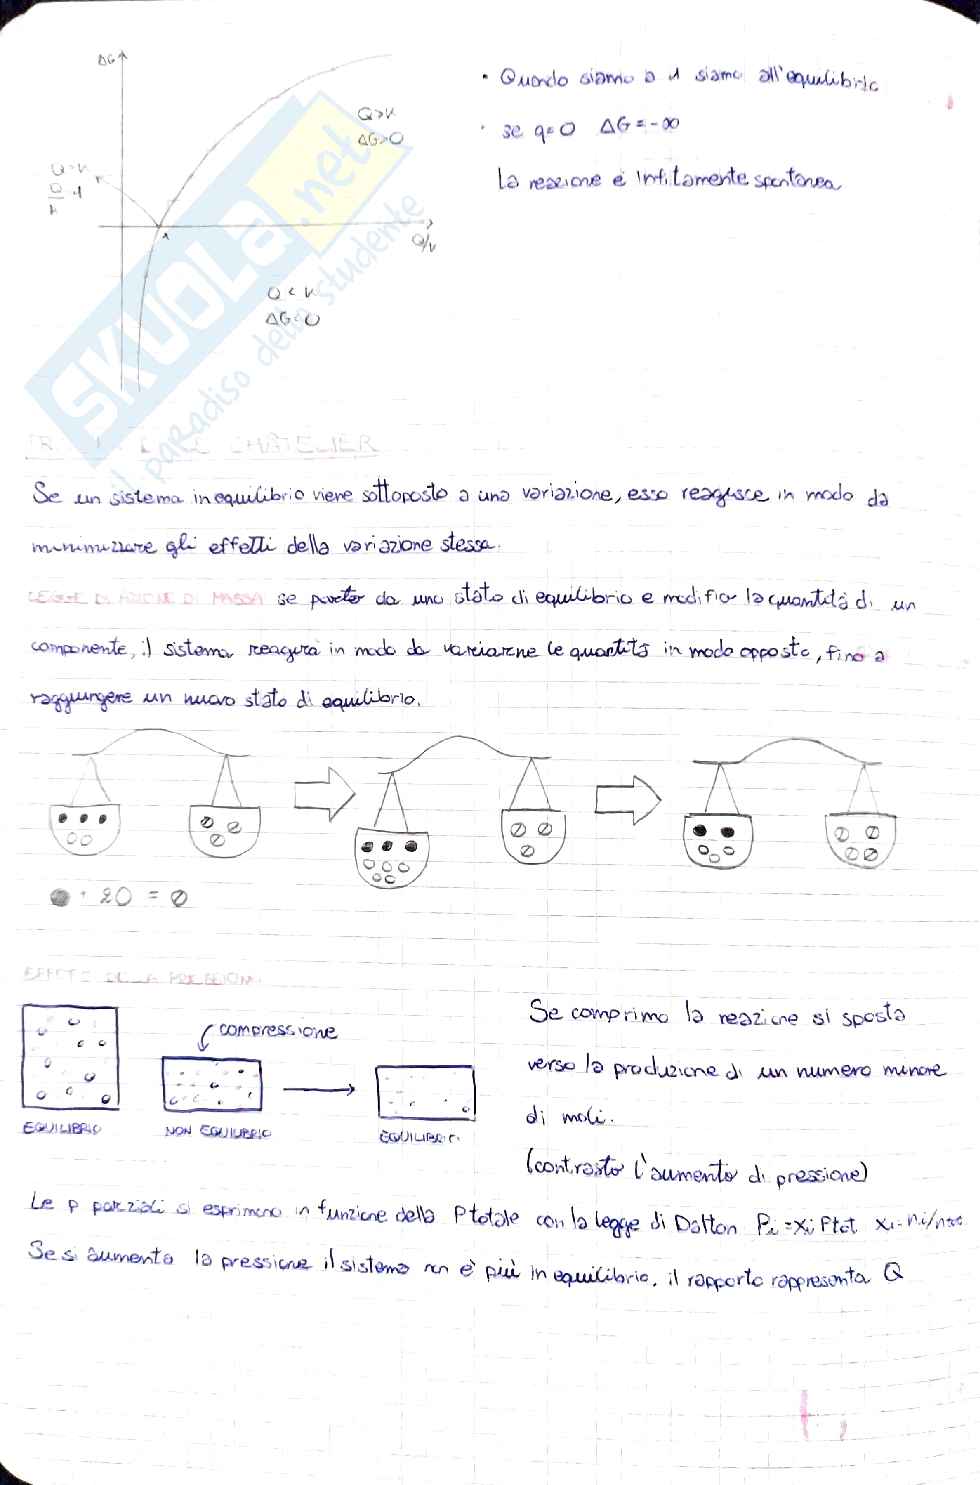 ΔG
• Quando siamo a 1 siamo all'equilibrio
Q>K
ΔG>0
• se q=0 ΔG=-∞
La reazione è infitamente spontanea
Q=K
Q/K = 1
1
Q/K
Q<K
ΔG<0
SKUOLA.net
il paradiso dello studente
LE CHATELIER
Se un sistema in equilibrio viene sottoposto a una variazione, esso reagisce in modo da
minimizzare gli effetti della variazione stessa.
LEGGE DI AZIONE DI MASSA se da uno stato di equilibrio e modifico la quantità di un
componente, il sistema reagirà in modo da variarne le quantità in modo opposto, fino a
raggiungere un nuovo stato di equilibrio.
● + 2O = ⊘
EFFETTO DELLA PRESSIONE
compressione
EQUILIBRIO
NON EQUILIBRIO
EQUILIBRIO
Se comprimo la reazione si sposta
verso la produzione di un numero minore
di moli.
(contrasto l'aumento di pressione)
Le p parziali si esprimono in funzione della Ptotale con la legge di Dalton Pi = xi Ptot xi = ni/ntot
Se si aumenta la pressione il sistema non è più in equilibrio, il rapporto rappresenta Q